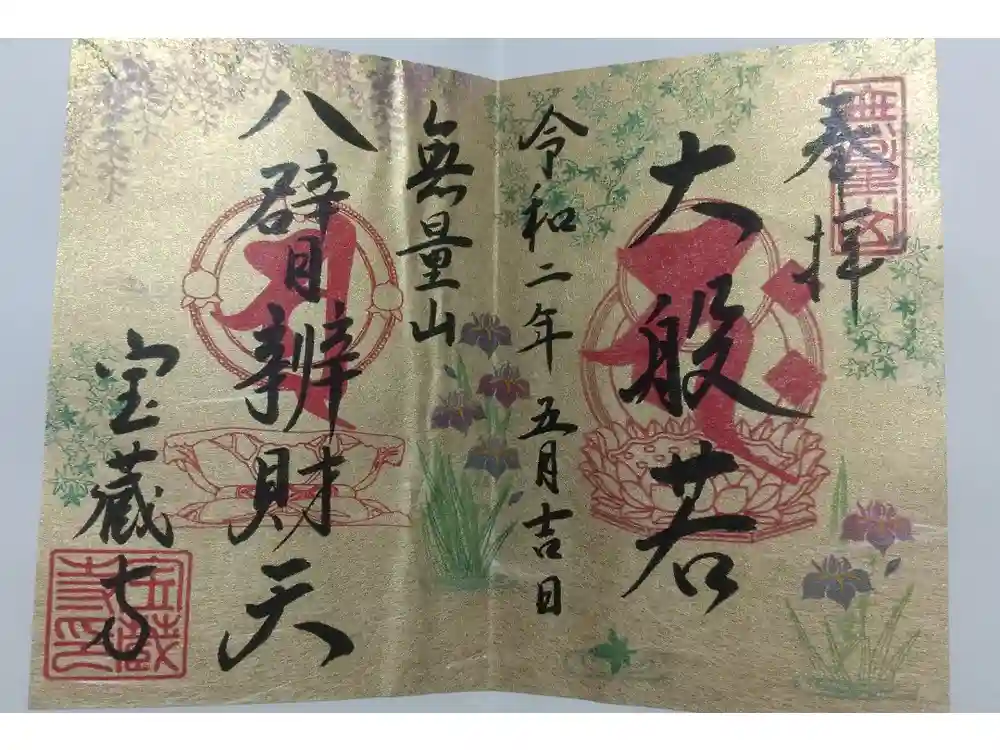 奉拝
大般若
令和二年 五月吉日
無量山
八臂辨財天
宝蔵寺